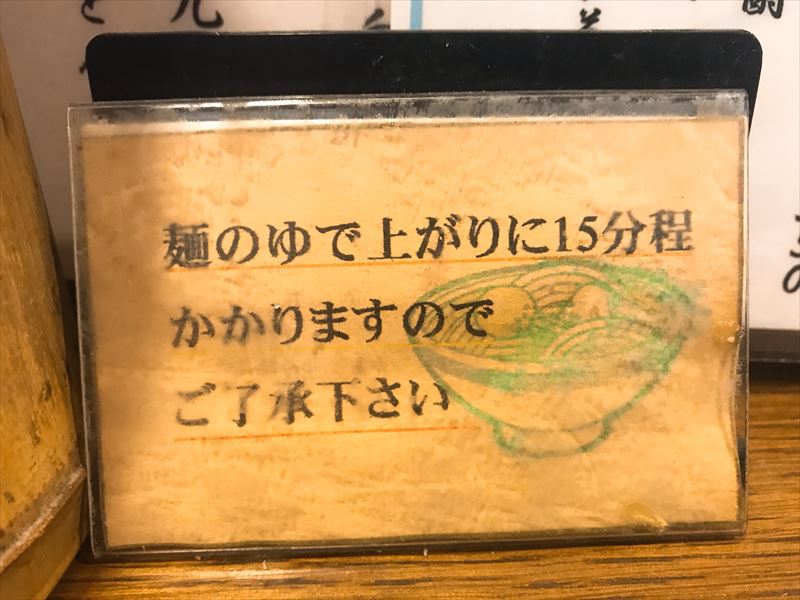 麺のゆで上がりに15分程
かかりますので
ご了承下さい